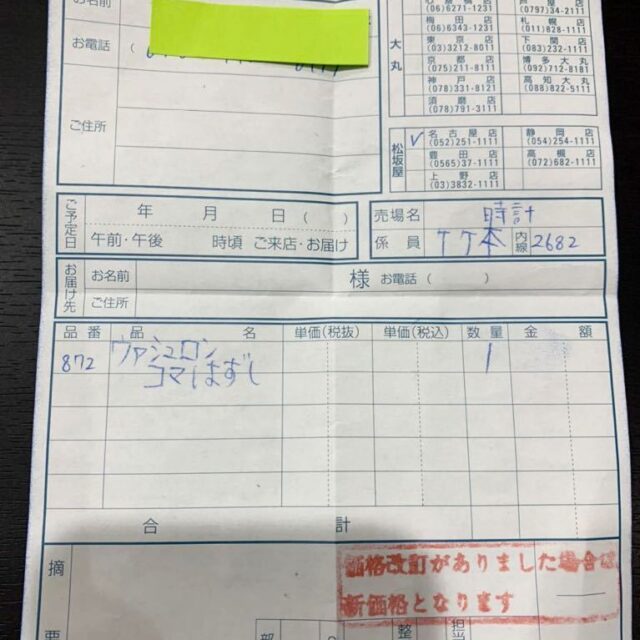 お名前
お電話 (
ご住所
大丸
心斎橋店
(06)6271-1231
梅田店
(06)6343-1231
東京店
(03)3212-8011
京都店
(075)211-8111
神戸店
(078)331-8121
須磨店
(078)791-3111
芦屋店
(0797)34-2111
札幌店
(011)828-1111
下関店
(083)232-1111
博多大丸
(092)712-8181
高知大丸
(088)822-5111
松坂屋
名古屋店
(052)251-1111
豊田店
(0565)37-1111
上野店
(03)3832-1111
静岡店
(054)254-1111
高槻店
(072)682-1111
ご予定日
年 月 日 ( )
午前・午後 時頃 ご来店・お届け
売場名 時計
係員 竹本 内線 2682
お届け先
お名前 様 お電話 ( )
ご住所
品番 品名 単価(税抜) 単価(税込) 数量 金額
872 ヴァシュロン 1
コマはずし
合計
摘要
価格改訂がありました場合は
新価格となります
部
整
担当